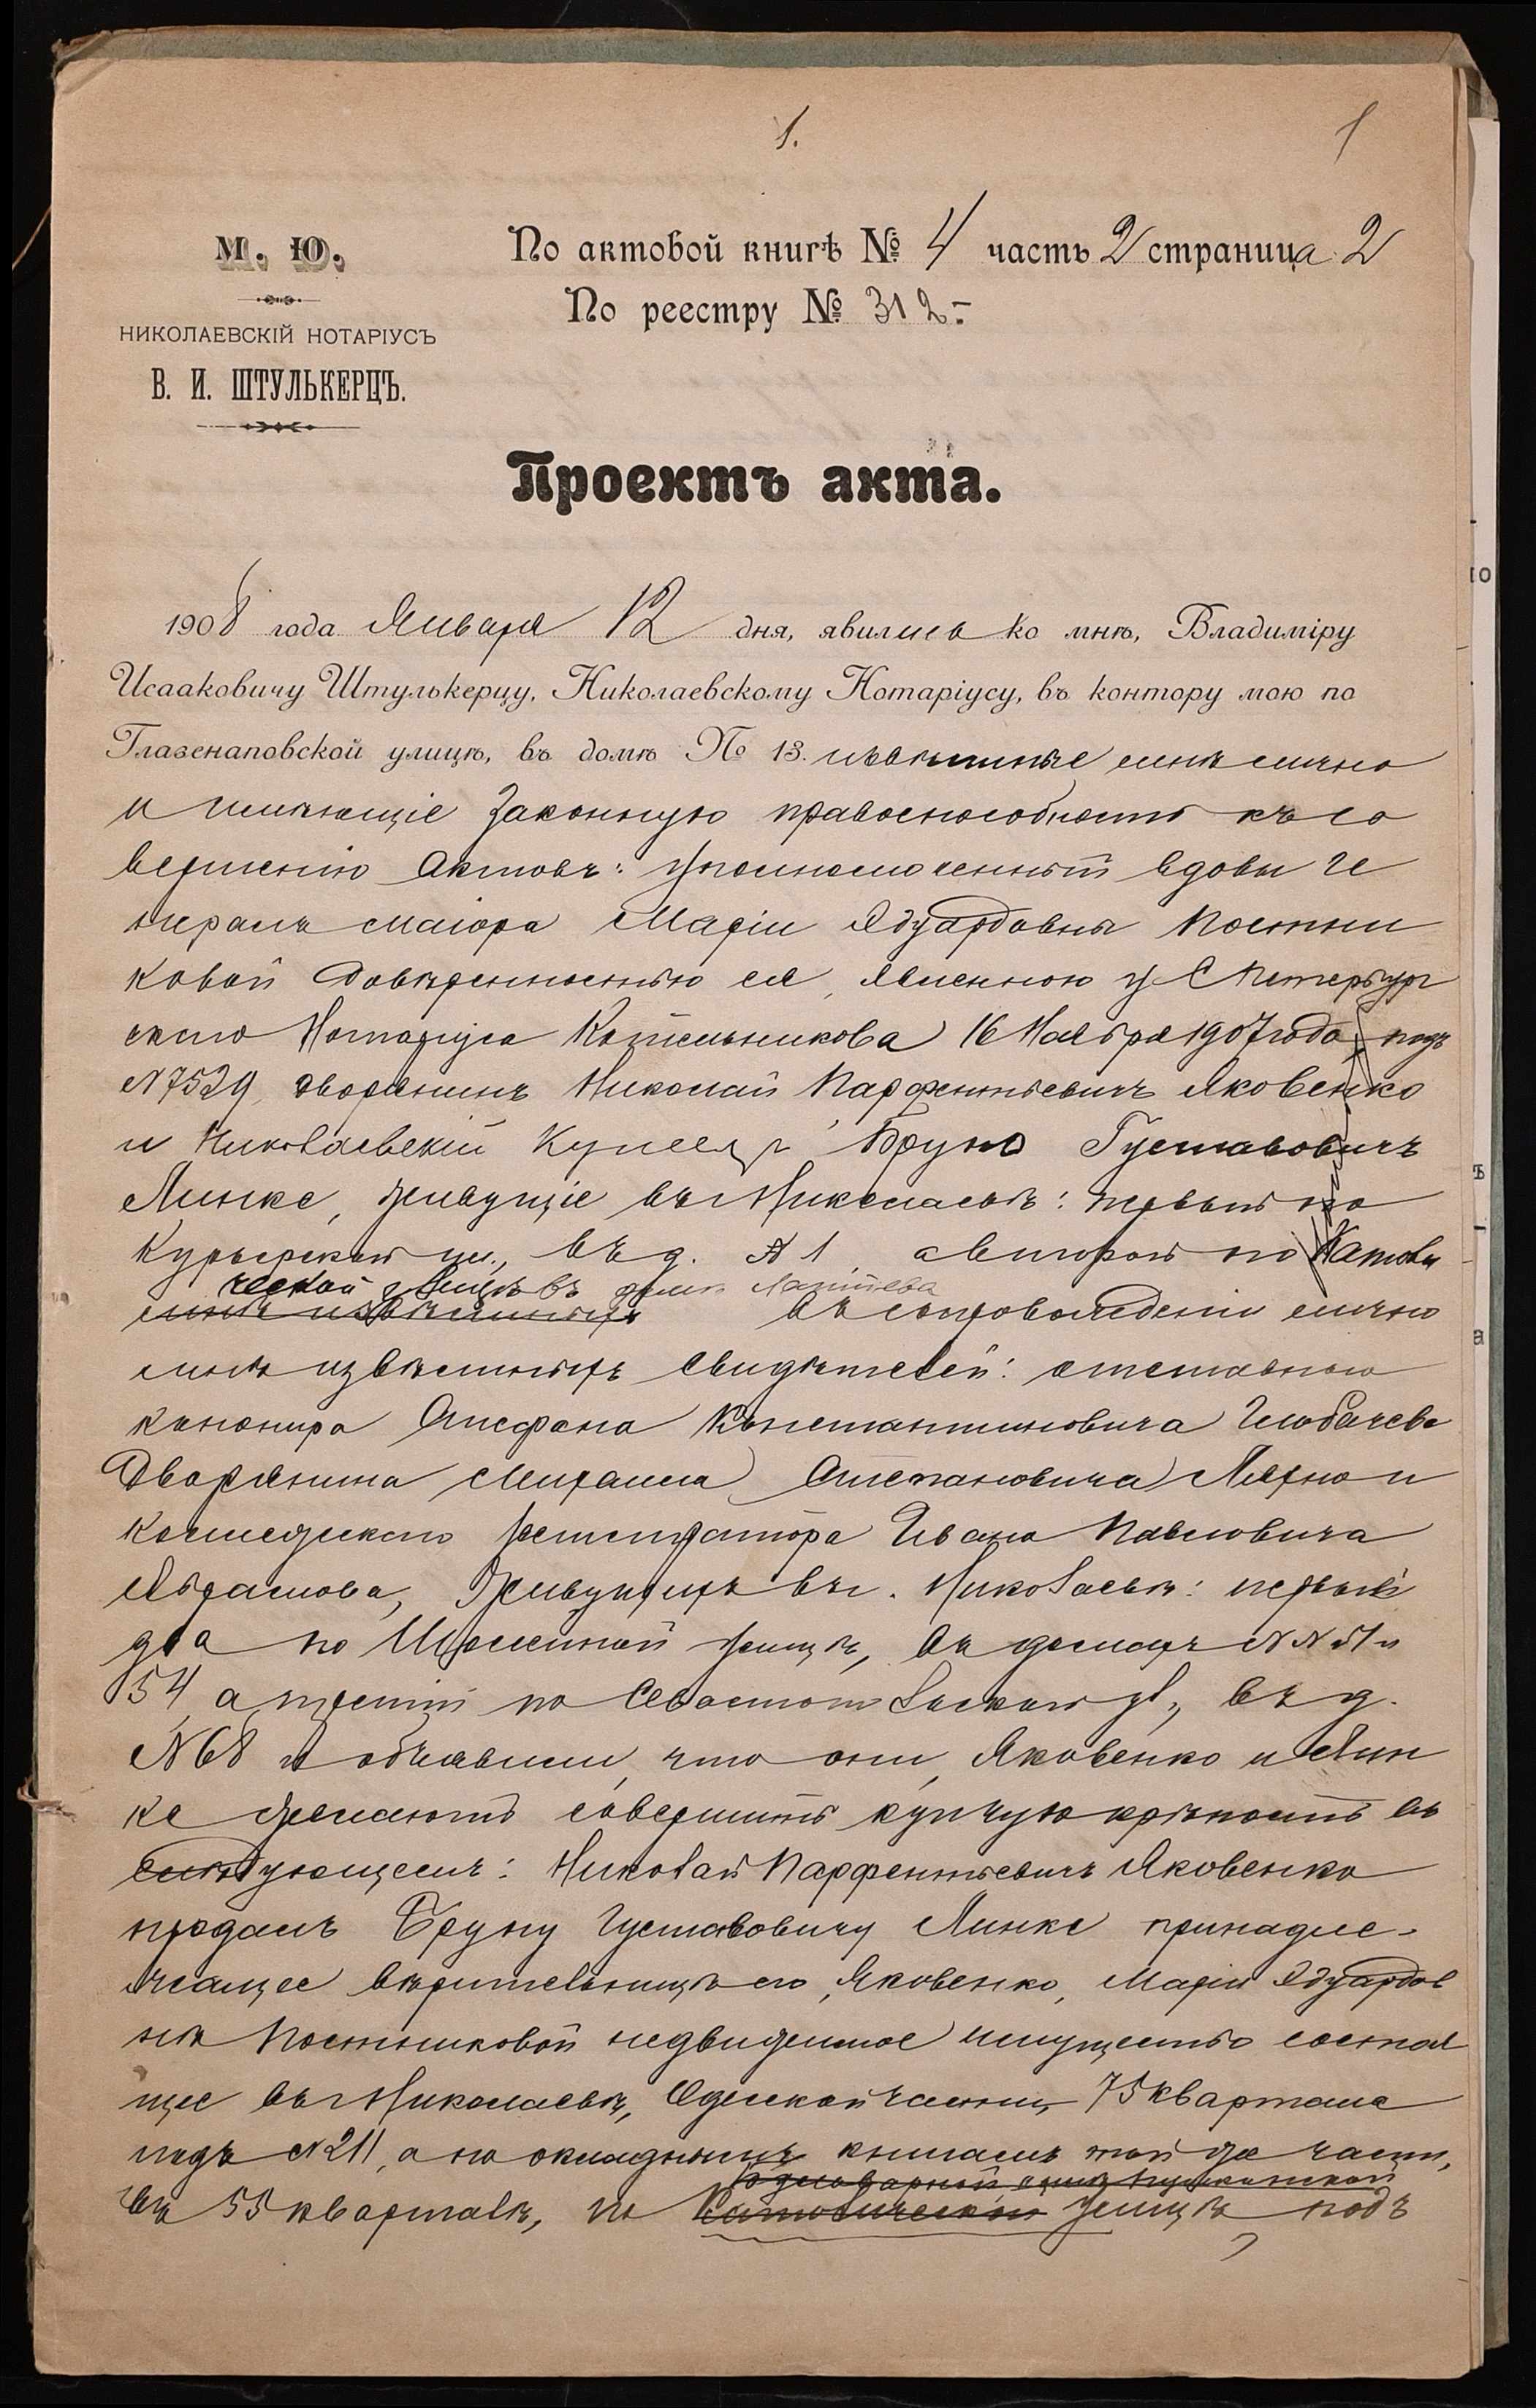 1.
1
М. Ю.
НИКОЛАЕВСКІЙ НОТАРІУСЪ
В. И. ШТУЛЬКЕРЦЪ.
По актовой книгѣ № 4 часть 2 страница 2
По реестру № 312.-
Проектъ акта.
1908 года Января 12 дня, явились ко мнѣ, Владиміру
Исааковичу Штулькерцу, Николаевскому Нотаріусу, въ контору мою по
Глазенаповской улицѣ, въ домѣ № 13. извѣстные мнѣ лично
и имѣющіе законную правоспособность къ со
вершенію актовъ: уполномоченный вдовы ге
нералъ маіора Маріи Эдуардовны Постни
ковой довѣренностью ея, явленною у С Петербург
скаго Нотаріуса Котельникова 16 Ноября 1907 года, подъ
N 7529, дворянинъ Николай Парфентьевичъ Яковенко
и Николаевскій Купецъ Бруно Густавовичъ
Линке, живущіе въ г Николаевѣ: первый по
Курьерской ул., въ д. № 1, а второй по Католи
ческой улицѣ въ домѣ Лаптева
мнѣ извѣстныхъ въ сопровожденіи лично
мнѣ извѣстныхъ свидѣтелей: отставного
канонира Стефана Константиновича Глобачева
Дворянина Михаила Степановича Ляхно и
Коллежскаго регистратора Ивана Павловича
Абрамова, живущихъ въ г. Николаевѣ: первые
два по Шоссейной улицѣ, въ домахъ NN 51 и
54, а третій по Севастопольской ул., въ д.
N 68 и объявили, что они, Яковенко и Лин
ке желаютъ совершить купчую крѣпость въ
слѣдующемъ: Николай Парфентьевичъ Яковенко
продалъ Бруну Густавовичу Линке принадле-
жащее вѣрительницѣ его, Яковенко, Маріи Эдуардов
нѣ Постниковой недвижимое имущество состоя
щее въ г Николаевѣ, Одесской части, 75 квартала
подъ N 211, а по окладнымъ книгамъ той же части,
въ 55 кварталѣ, по Католической улицѣ подъ